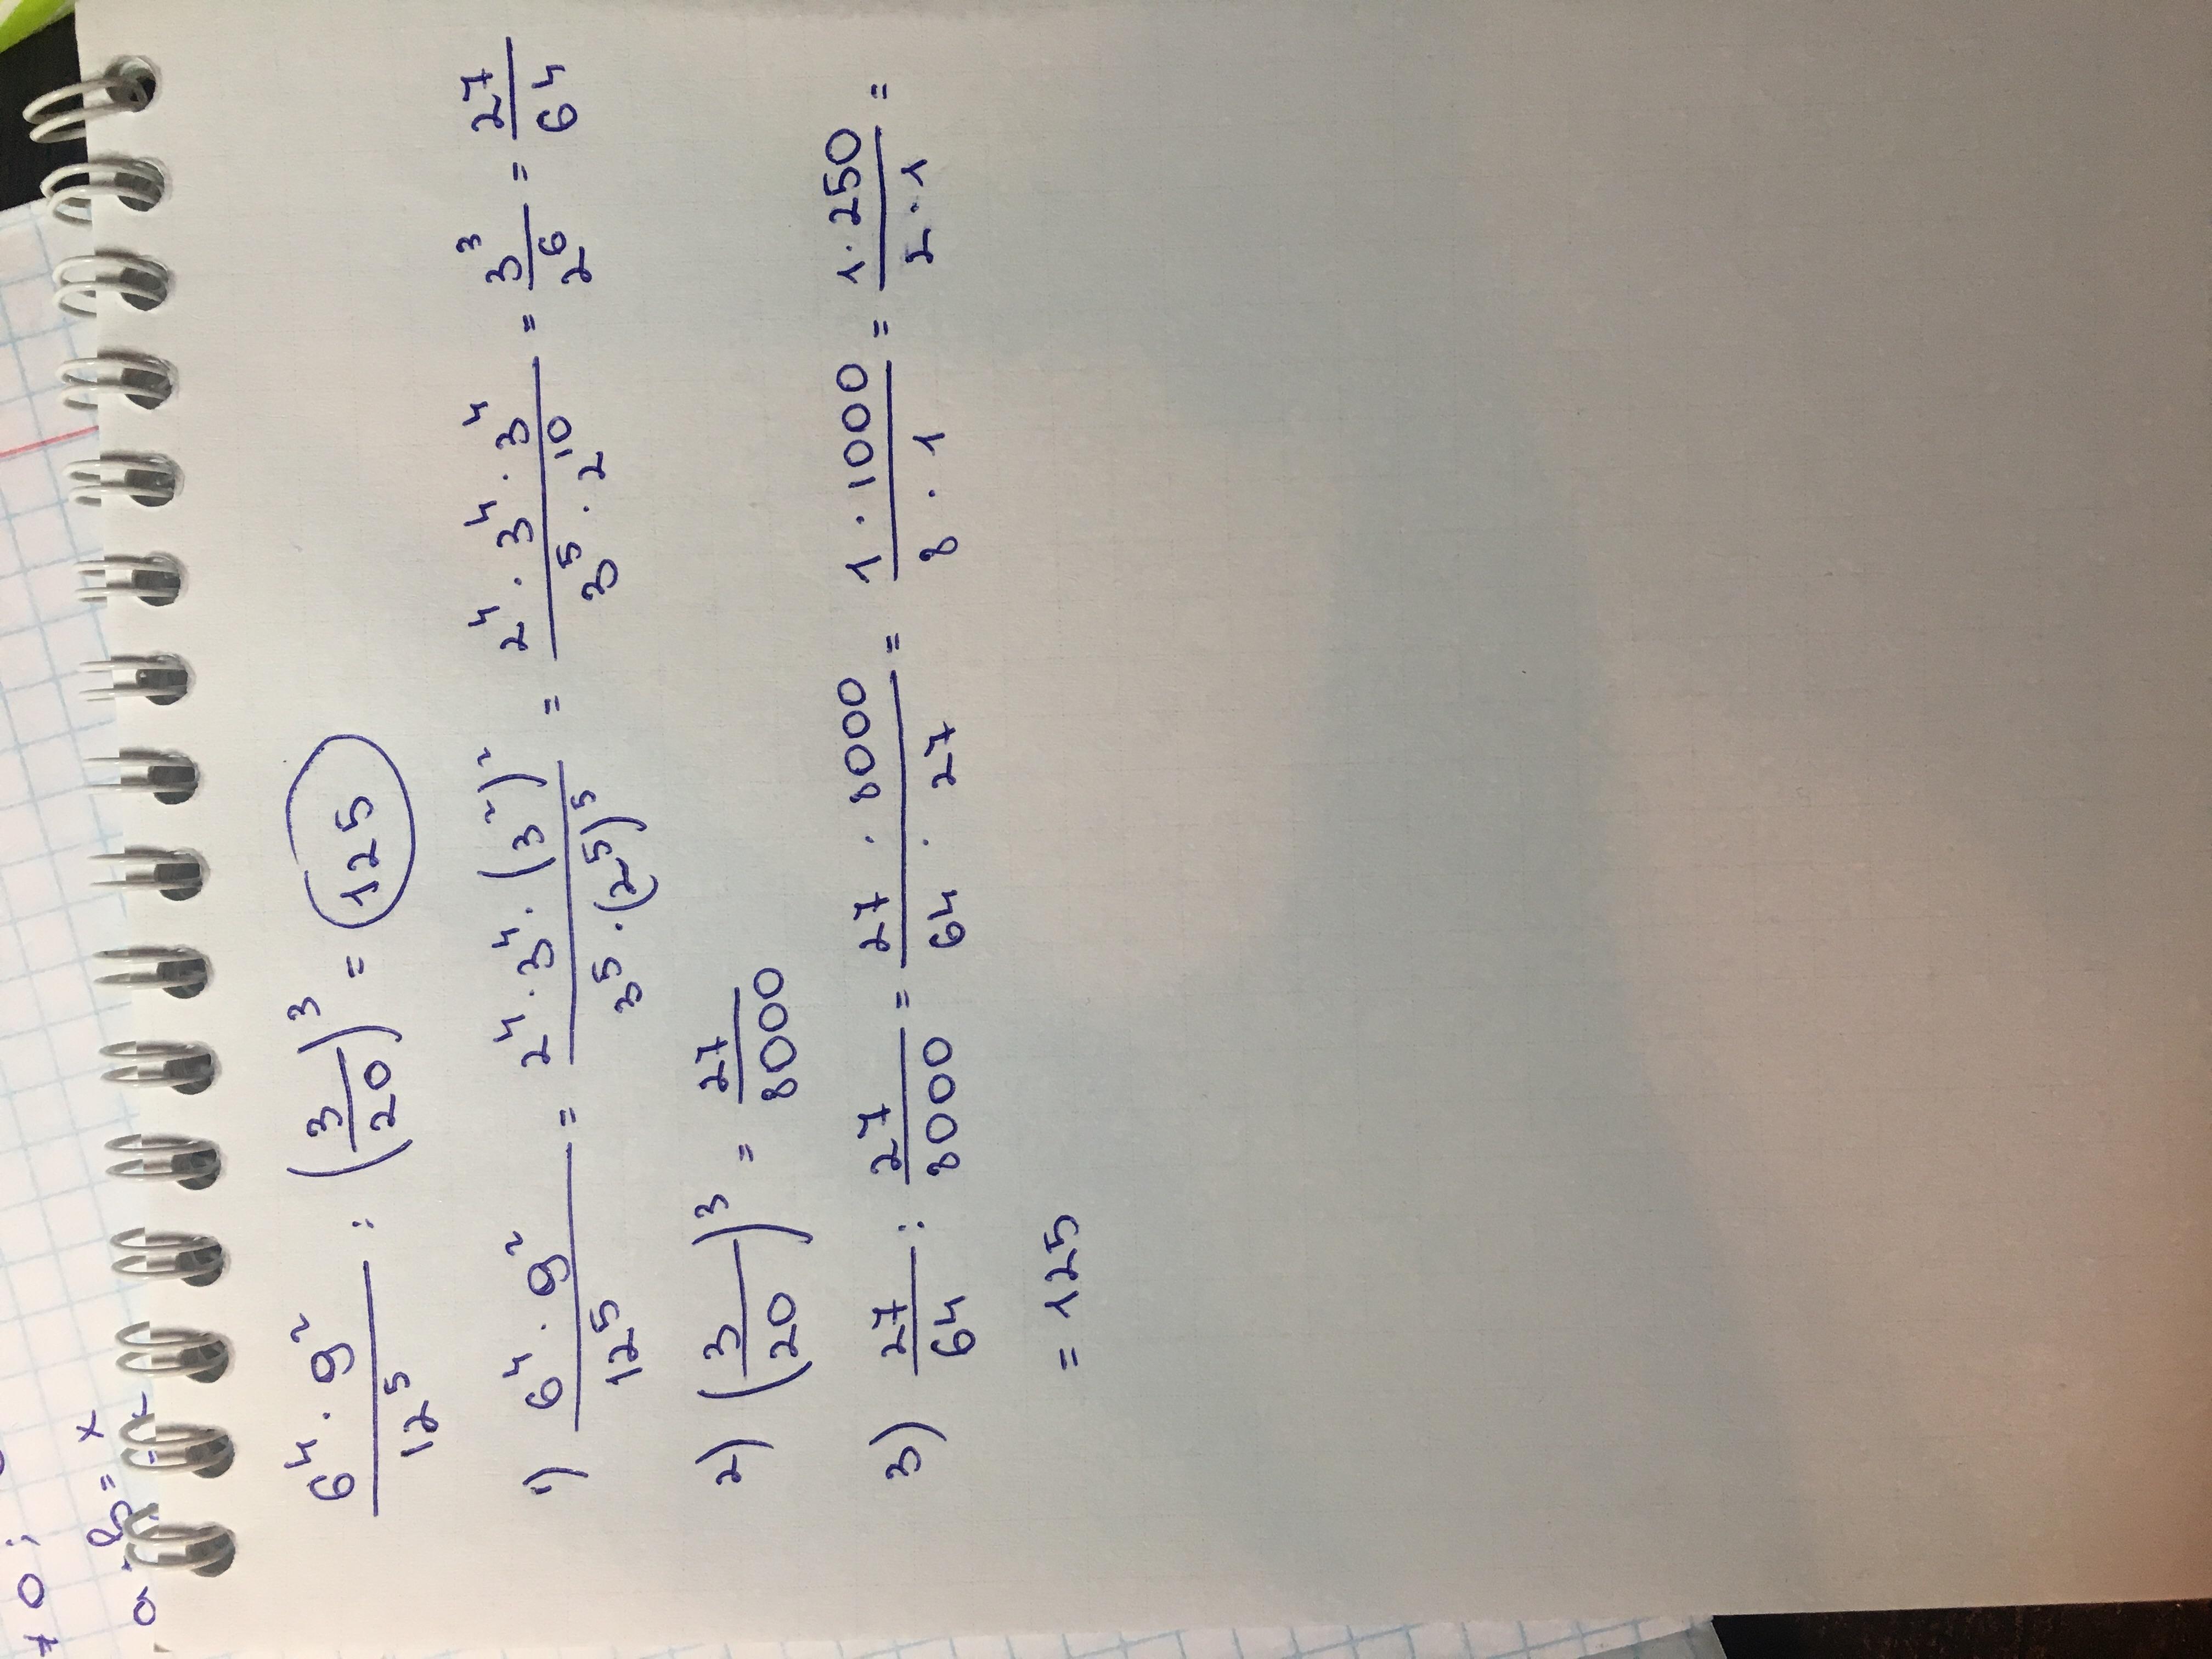 6⁴ · 9² / 12⁵ : (3/20)³ = 125
1) 6⁴ · 9² / 12⁵ = 2⁴ · 3⁴ · (3²)² / 3⁵ · (2⁵)⁵ = 2⁴ · 3⁴ · 3⁴ / 3⁵ · 2¹⁰ = 3³ / 2⁶ = 27 / 64
2) (3/20)³ = 27 / 8000
3) 27 / 64 : 27 / 8000 = 27 · 8000 / 64 · 27 = 1 · 1000 / 8 · 1 = 1 · 250 / 2 · 1 =
= 125